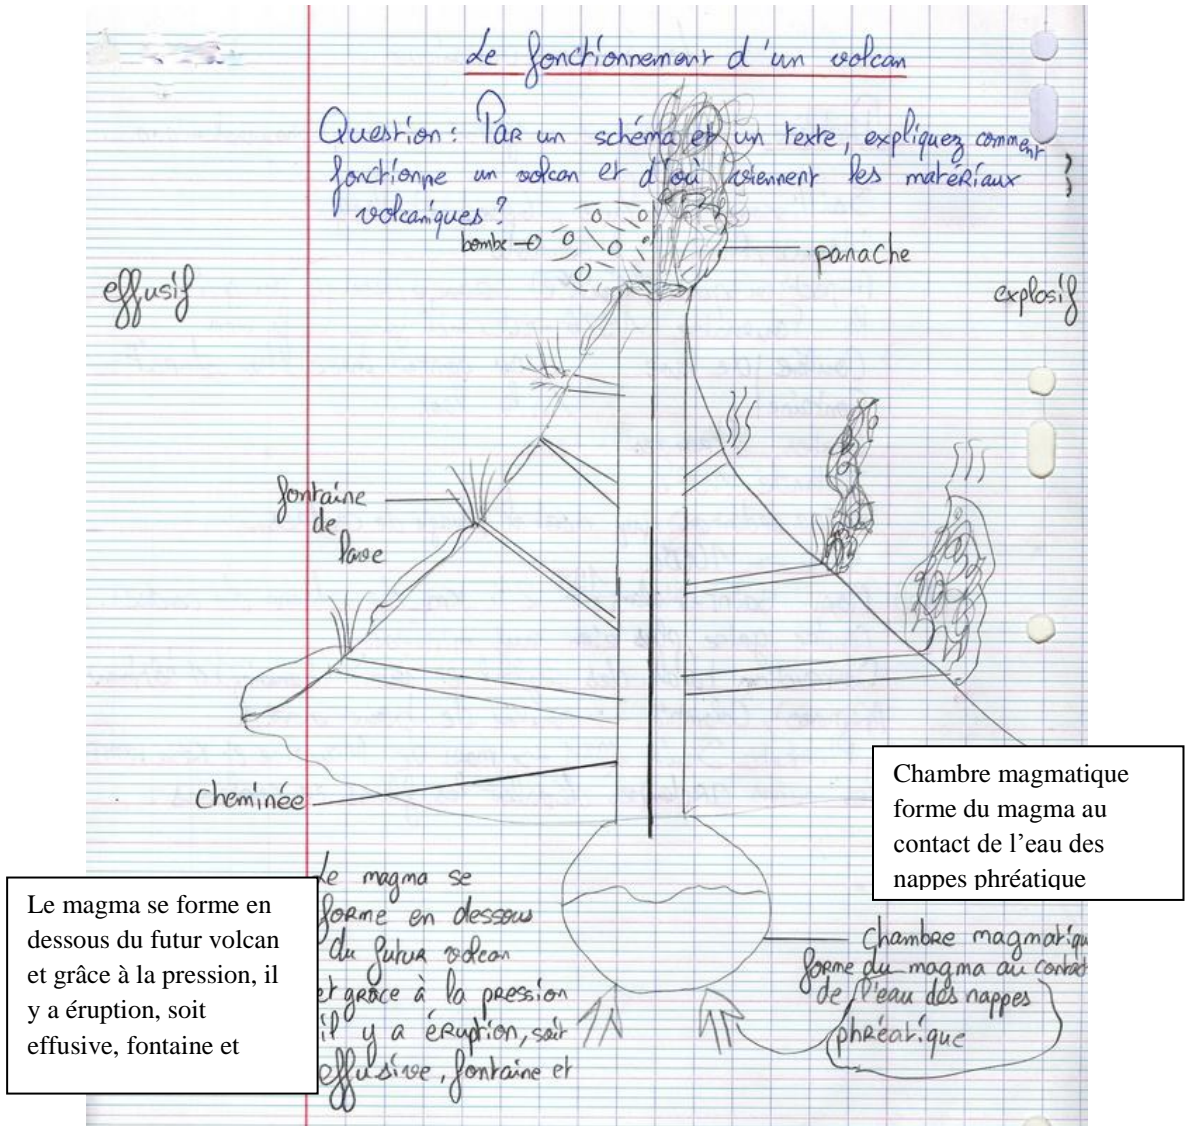 Le fonctionnement d'un volcan
Question : Par un schéma et un texte, expliquez comment
fonctionne un volcan et d'où viennent les matériaux
volcaniques ?
bombe
panache
effusif
explosif
fontaine
de
lave
cheminée
Chambre magmatique
forme du magma au
contact de l'eau des
nappes phréatique
Le magma se forme en
dessous du futur volcan
et grâce à la pression, il
y a éruption, soit
effusive, fontaine et
Le magma se
forme en dessous
du futur volcan
et grâce à la pression
il y a éruption, soit
effusive, fontaine et
Chambre magmatiqu
forme du magma au contact
de l'eau des nappes
phréatique